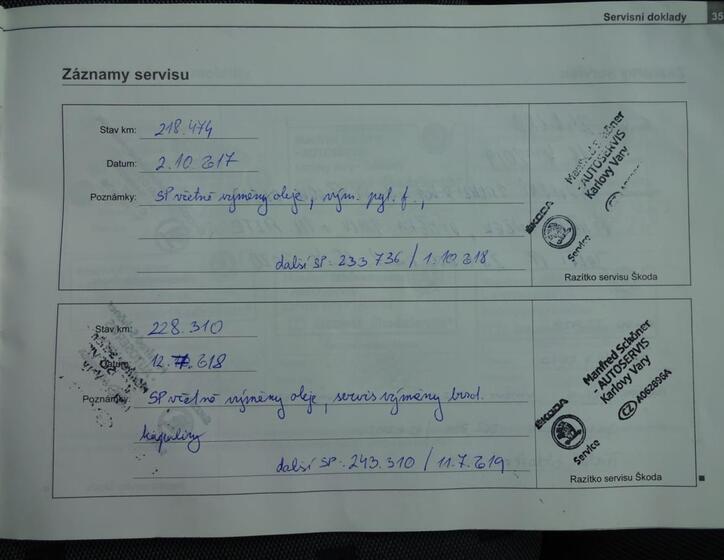 Servisní doklady 35
Záznamy servisu
Stav km: 218.474
Datum: 2.10.2017
Poznámky: SP včetně výměny oleje, vým. pyl. f.,
další SP: 233 736 / 1.10.2018
Manfred Schöner
- AUTOSERVIS
Karlovy Vary
ŠKODA
Service
Razítko servisu Škoda
Stav km: 228.310
Datum: 12.7.2018
Poznámky: SP včetně výměny oleje, servis výměny brzd.
kapaliny
další SP: 243.310 / 11.7.2019
Manfred Schöner
- AUTOSERVIS
Karlovy Vary
CZ A062896A
ŠKODA
Service
Razítko servisu Škoda